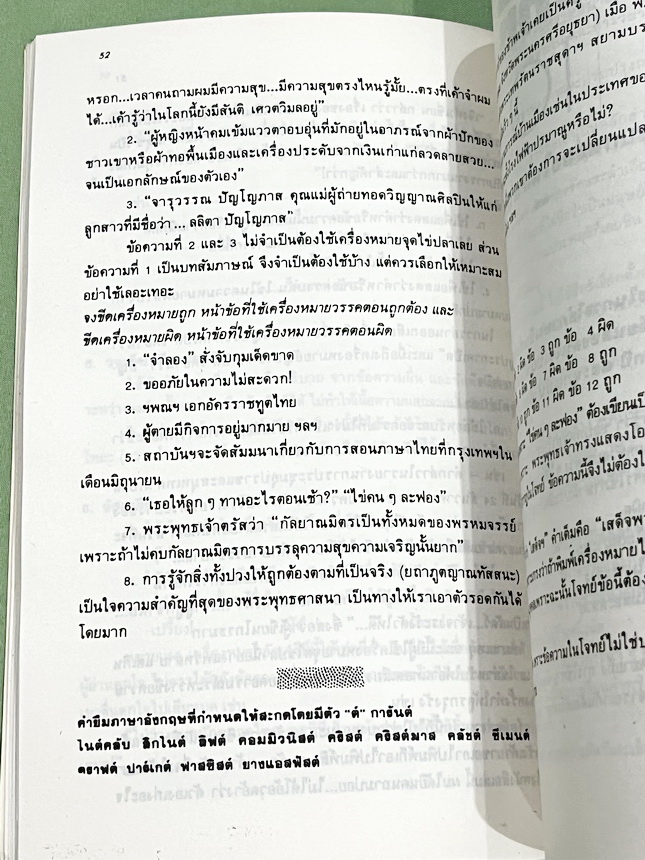 52
หรอก...เวลาคนถามผมมีความสุข...มีความสุขตรงไหนรู้มั้ย...ตรงที่เค้าจำผม
ได้...เค้ารู้ว่าในโลกนี้ยังมีสันติ เศวตวิมลอยู่"
2. "ผู้หญิงหน้าคมเข้มแววตาอบอุ่นที่มักอยู่ในอาภรณ์จากผ้าปักของ
ชาวเขาหรือผ้าทอพื้นเมืองและเครื่องประดับจากเงินเก่าแก่ลวดลายสวย...
จนเป็นเอกลักษณ์ของตัวเอง"
3. "จารุวรรณ ปัญโญภาส คุณแม่ผู้ถ่ายทอดวิญญาณศิลปินให้แก่
ลูกสาวที่มีชื่อว่า... ลลิตา ปัญโญภาส"
ข้อความที่ 2 และ 3 ไม่จำเป็นต้องใช้เครื่องหมายจุดไข่ปลาเลย ส่วน
ข้อความที่ 1 เป็นบทสัมภาษณ์ จึงจำเป็นต้องใช้บ้าง แต่ควรเลือกให้เหมาะสม
อย่าใช้เลอะเทอะ
จงขีดเครื่องหมายถูก หน้าข้อที่ใช้เครื่องหมายวรรคตอนถูกต้อง และ
ขีดเครื่องหมายผิด หน้าข้อที่ใช้เครื่องหมายวรรคตอนผิด
1. "จำลอง" สั่งจับกุมเด็ดขาด
2. ขออภัยในความไม่สะดวก!
3. ฯพณฯ เอกอัครราชทูตไทย
4. ผู้ตายมีกิจการอยู่มากมาย ฯลฯ
5. สถาบันฯจะจัดสัมมนาเกี่ยวกับการสอนภาษาไทยที่กรุงเทพฯใน
เดือนมิถุนายน
6. "เธอให้ลูก ๆ ทานอะไรตอนเช้า?" "ไข่คน ๆ ละฟอง"
7. พระพุทธเจ้าตรัสว่า "กัลยาณมิตรเป็นทั้งหมดของพรหมจรรย์
เพราะถ้าไม่คบกัลยาณมิตรการบรรลุความสุขความเจริญนั้นยาก"
8. การรู้จักสิ่งทั้งปวงให้ถูกต้องตามที่เป็นจริง (ยถาภูตญาณทัสสนะ)
เป็นใจความสำคัญที่สุดของพระพุทธศาสนา เป็นทางให้เราเอาตัวรอดกันได้
โดยมาก
คำยืมภาษาอังกฤษที่กำหนดให้สะกดโดยมีตัว "ต์" การันต์
ไนต์คลับ ลิกไนต์ ลิฟต์ คอมมิวนิสต์ คริสต์ คริสต์มาส คลัชต์ ซีเมนต์
ดราฟต์ ปาร์เกต์ ฟาสซิสต์ ยางแอสฟัสต์
จังหวัดพระนครศรีอยุธยา) เมื่อ พ.
สยามบร
บ้านเมืองเช่นในประเทศของ
ไฟฟ้าปรมาณูหรือไม่?
ต้องการจะเปลี่ยนแปล
ข้อ 3 ถูก ข้อ 4 ผิด
ข้อ 7 ผิด ข้อ 8 ถูก
ข้อ 11 ผิด ข้อ 12 ถูก
"ไข่คน ๆ ละฟอง" ต้องเขียนเป็
พระพุทธเจ้าทรงแสดงโอ
ข้อความนี้จึงไม่ต้องใ
คำเต็มคือ "เสด็จพ
ว่าถ้าพิมพ์เครื่องหมายไ
เพราะฉะนั้นโจทย์ข้อนี้ต้อง
เพราะข้อความในโจทย์ไม่ใช่บ